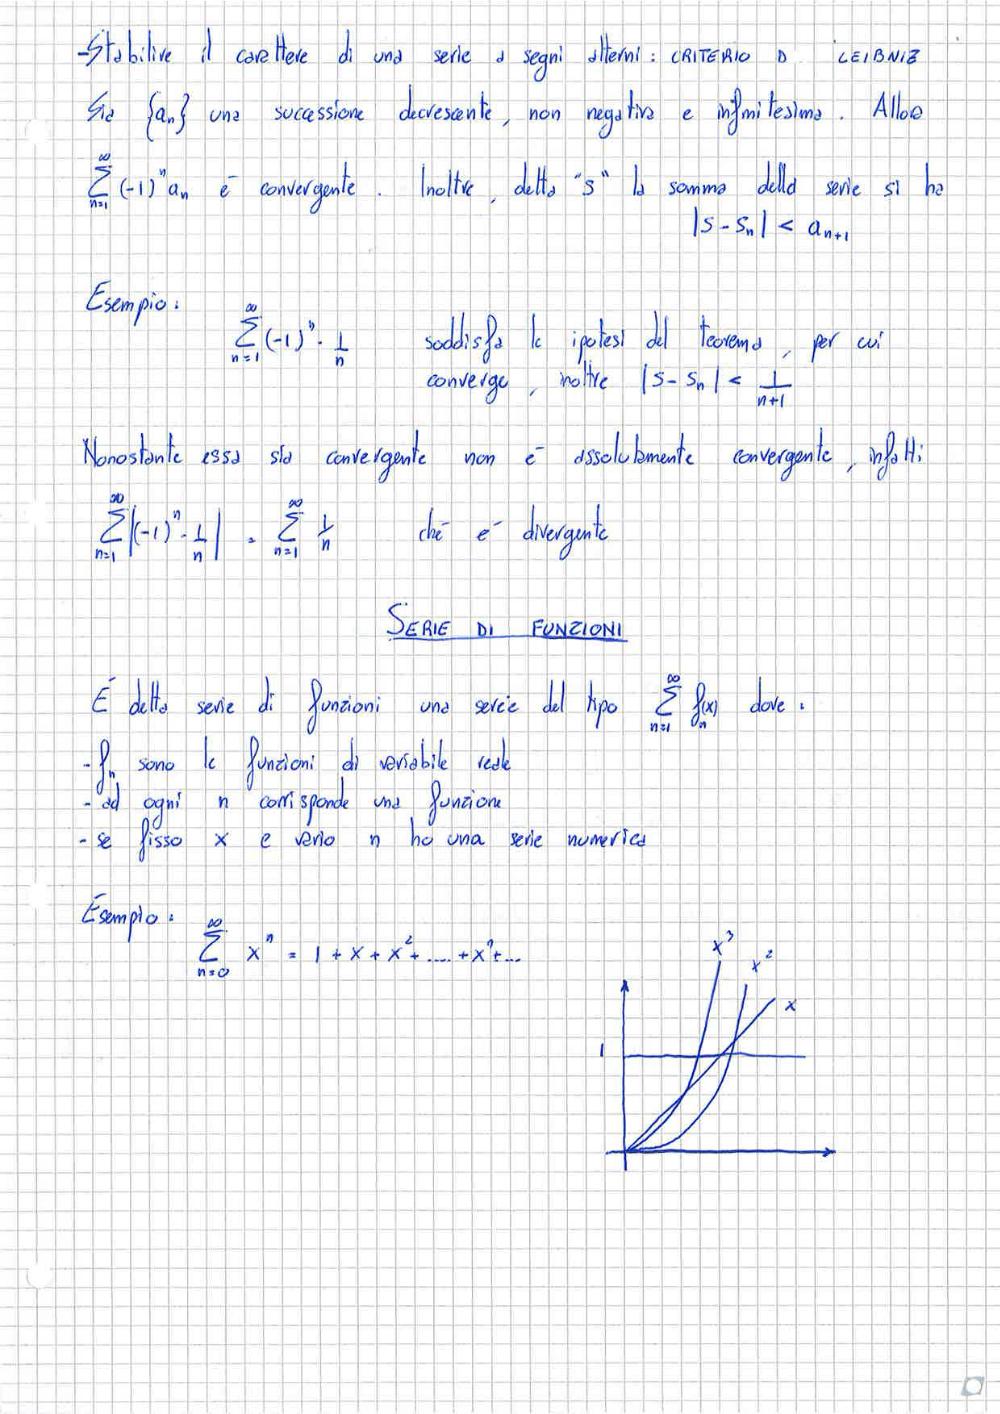 -Stabilire il carattere di una serie a segni alterni: CRITERIO D LEIBNIZ
Sia {aₙ} una successione decrescente, non negativa e infinitesima. Allora
∞∑n=1 (-1)ⁿ aₙ é convergente. Inoltre, detta "S" la somma della serie si ha
|S - Sₙ| < aₙ₊₁
Esempio:
∞∑n=1 (-1)ⁿ · 1/n soddisfa le ipotesi del teorema, per cui
converge, inoltre |S - Sₙ| < 1/(n+1)
Nonostante essa sia convergente non é assolutamente convergente, infatti
∞∑n=1 |(-1)ⁿ · 1/n| = ∞∑n=1 1/n ché é divergente
SERIE DI FUNZIONI
É detta serie di funzioni una serie del tipo ∞∑n=1 fₙ(x) dove:
- fₙ sono le funzioni di variabile reale
- ad ogni n corrisponde una funzione
- se fisso x e vario n ho una serie numerica
Esempio:
∞∑n=0 xⁿ = 1 + x + x² + .... + xⁿ + ...
x³
x²
x
1